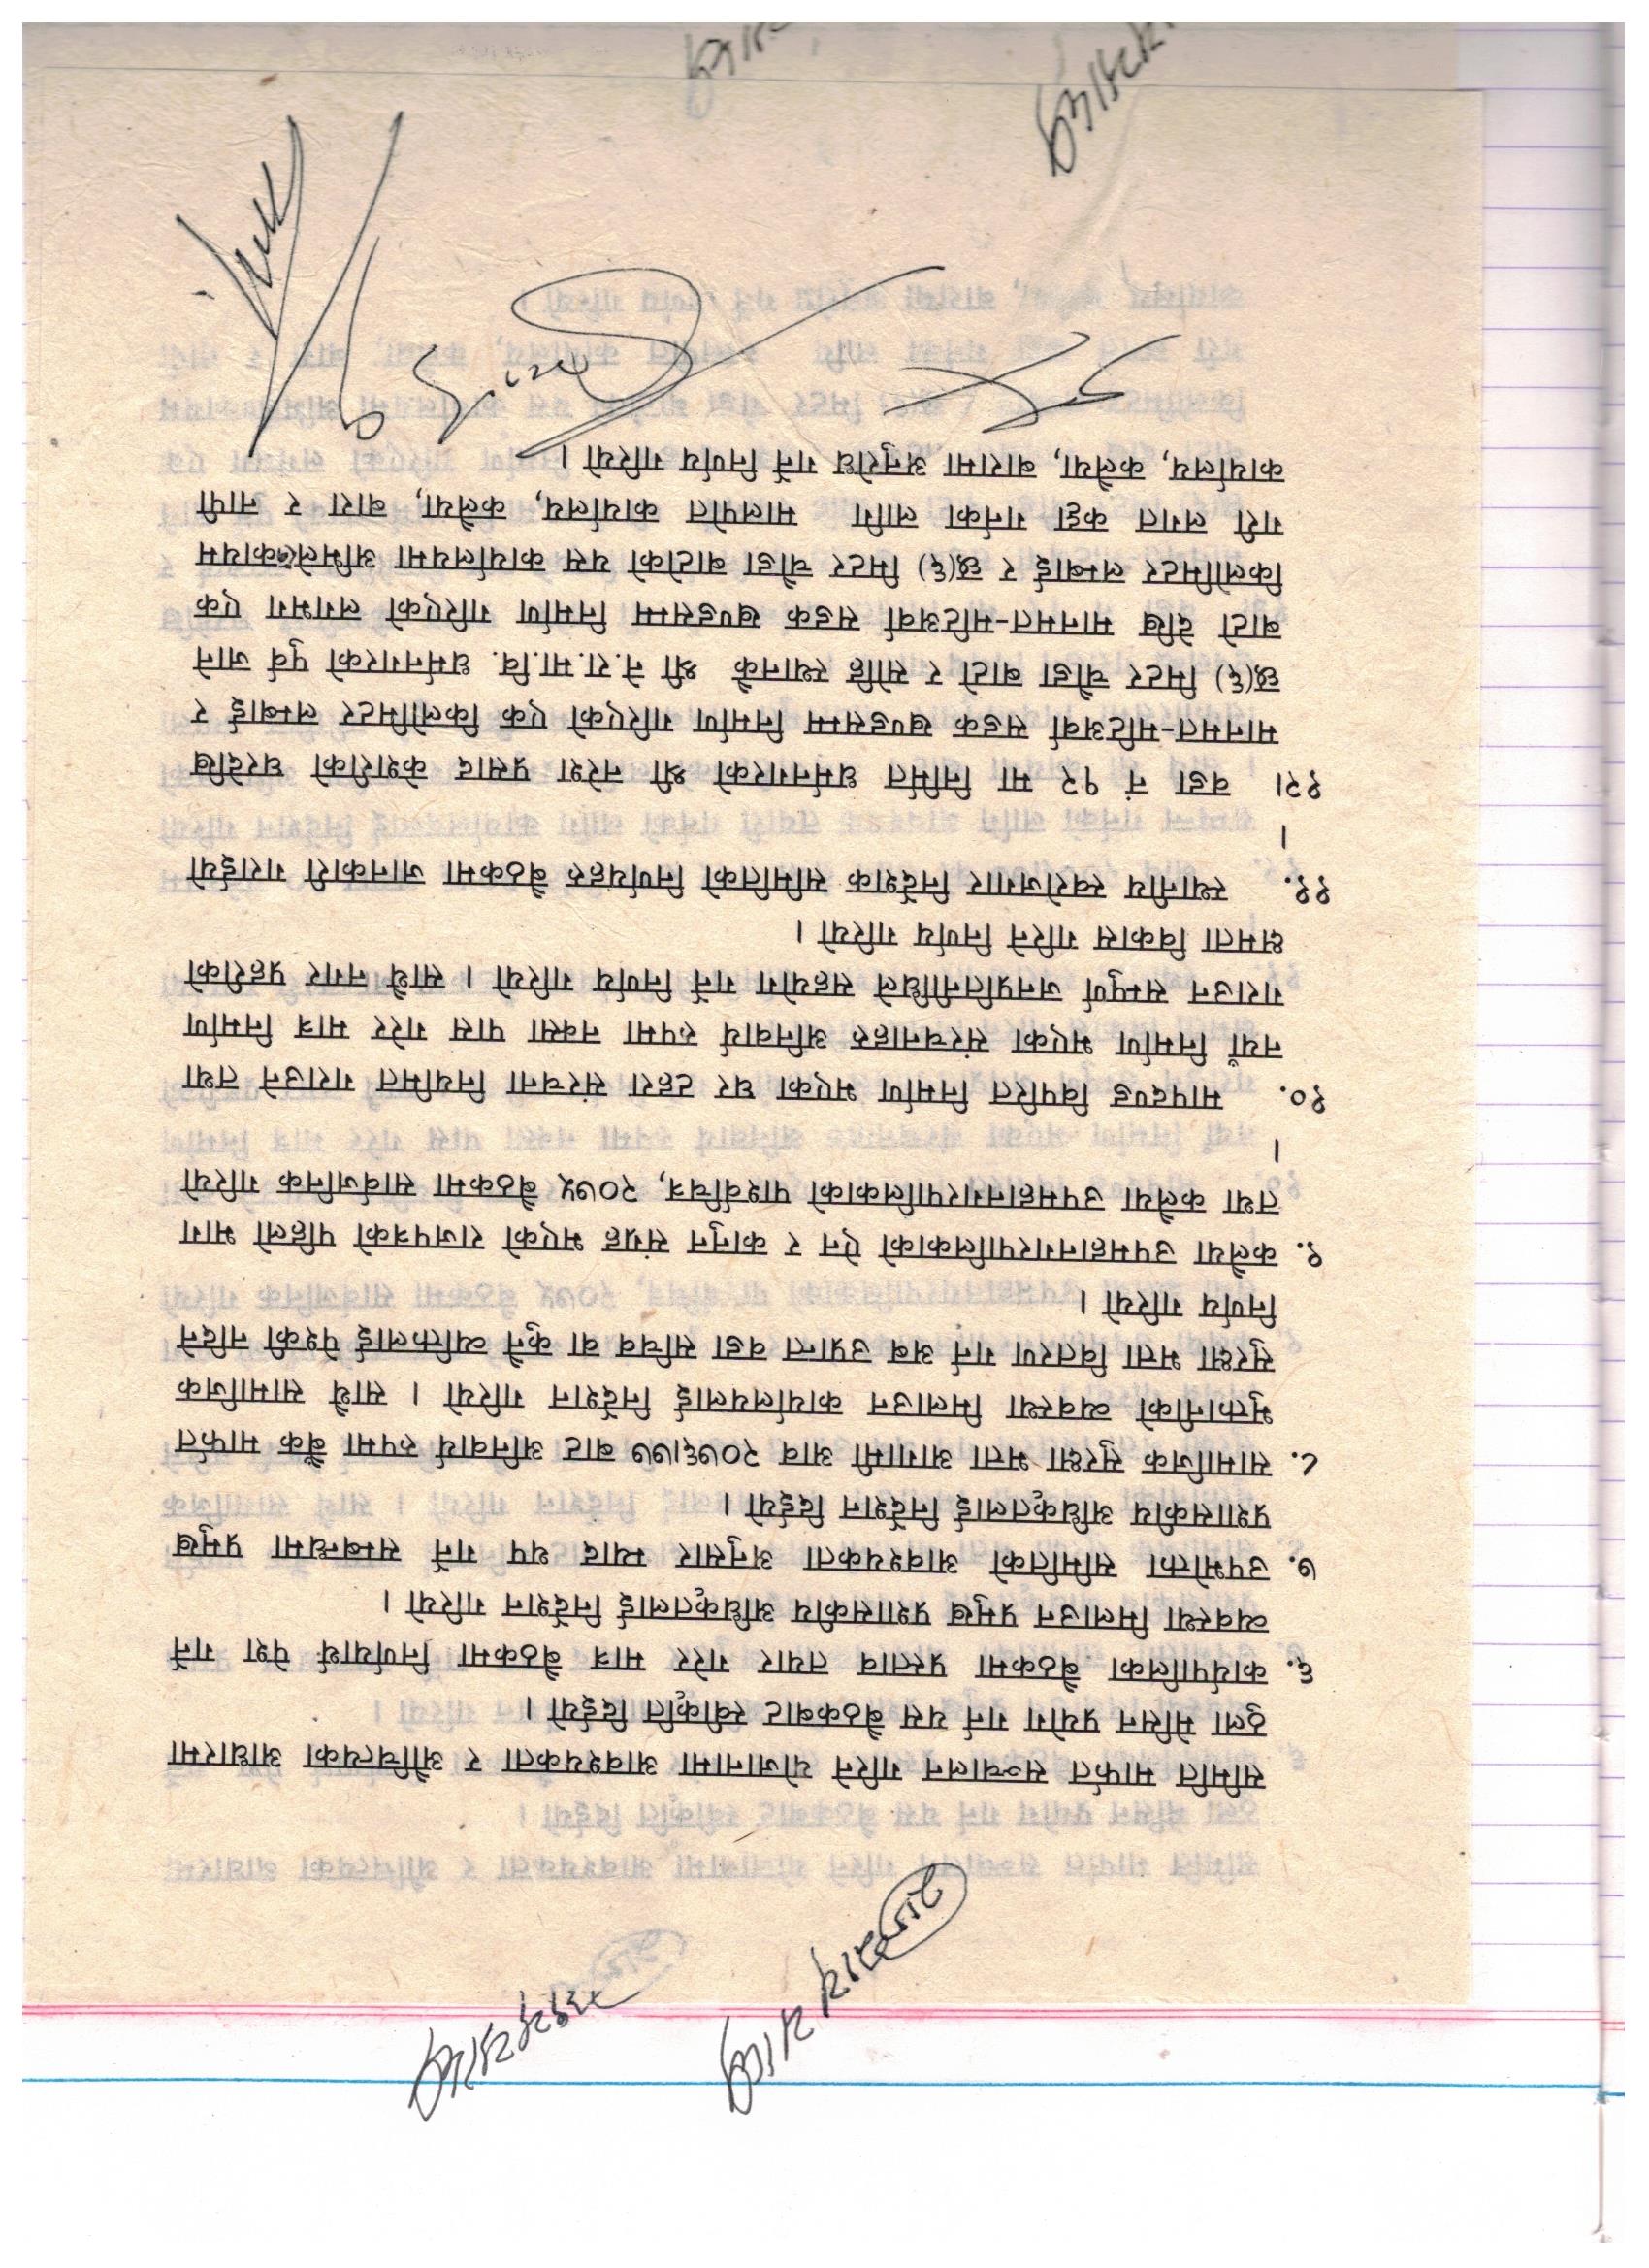 समिति मार्फत सञ्चालन गरिने योजानामा आवश्यकता र औचित्यका आधारमा
ठुला मेसिन प्रयोग गर्न यस बैठकबाट स्वीकृति दिईयो ।
६. कार्यपालिका बैठकमा प्रस्ताव तयार गरेर मात्र बैठकमा निर्णयार्थ पेश गर्ने
व्यवस्था मिलाउन प्रमुख प्रशासकीय अधिकृतलाई निर्देशन गरियो ।
७. उपभोक्ता समितिको आवश्यकता अनुसार म्याद थप गर्ने सम्बन्धमा प्रमुख
प्रशासकीय अधिकृतलाई निर्देशन दिईयो ।
८. सामाजिक सुरक्षा भत्ता आगामी आव २०७६।७७ बाट अनिवार्य रुपमा बैंक मार्फत
भूक्तानीको व्यवस्था मिलाउन कार्यालयलाई निर्देशन गरियो । साथै सामाजिक
सुरक्षा भत्ता वितरण गर्न अब उप्रान्त वडा सचिव वा कुनै व्यक्तिलाई पेश्की नदिने
निर्णय गरियो ।
९. कलैया उपमहानगरपालिकाको ऐन र कानुन संग्रह भएको राजपत्रको पहिलो भाग
तथा कलैया उपमहानगरपालिकाको पार्श्वचित्र, २०७५ बैठकमा सार्वजनिक गरियो
।
१०. मापदण्ड विपरित निर्माण भएका घर टहरा संरचना नियमित गराउने तथा
नयाँ निर्माण भएका संरचनाहरु अनिवार्य रुपमा नक्सा पास गरेर मात्र निर्माण
गराउन सम्पूर्ण जनप्रतिनीधिले सहयोग गर्ने निर्णय गरियो । साथै नगर प्रहरीको
क्षमता विकास गरिने निर्णय गरियो ।
११. स्थानीय स्वरोजगार निर्देशक समितिको निर्णयहरु बैठकमा जानकारी गराईयो
।
१२। वडा नं १२ मा निर्मित धर्मनगरको श्री नरेश प्रसाद केशरीको घरदेखि
मानमत-मटिअर्वा सडक खण्डसम्म निर्माण गरिएको एक किलोमिटर लम्बाई र
छ(६) मिटर चौडा बाटो र सोहि स्थानकै श्री ने.रा.मा.वि. धर्मनगरको पुर्व जाने
बाटो देखि मानमत-मटिअर्वा सडक खण्डसम्म निर्माण गरिएको लगभग एक
किलोमिटर लम्बाई र छ(६) मिटर चौडा बाटोको यस कार्यालयमा अभिलेखकायम
गरी लगत कट्टा गर्नका लागि मालपोत कार्यालय, कलैया, बारा र नापी
कार्यालय, कलैया, बारामा अनुरोध गर्ने निर्णय गरियो ।